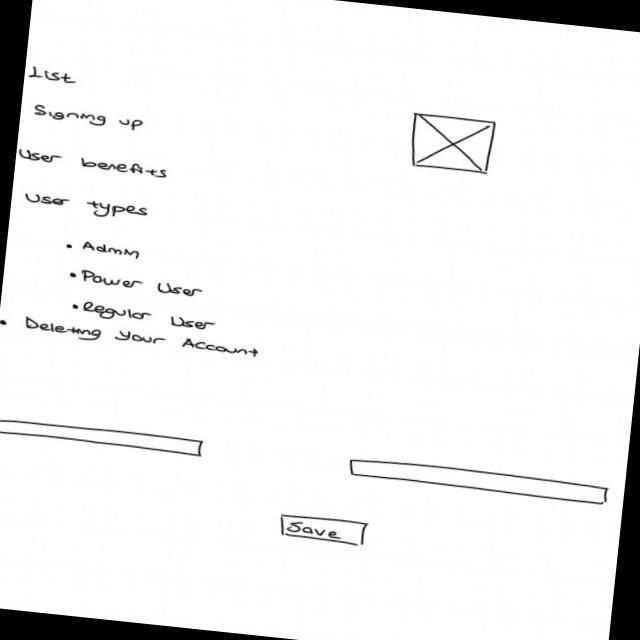 List
Signing up
User benefits
User types
• Admin
• Power User
• Regular User
• Deleting Your Account
Save